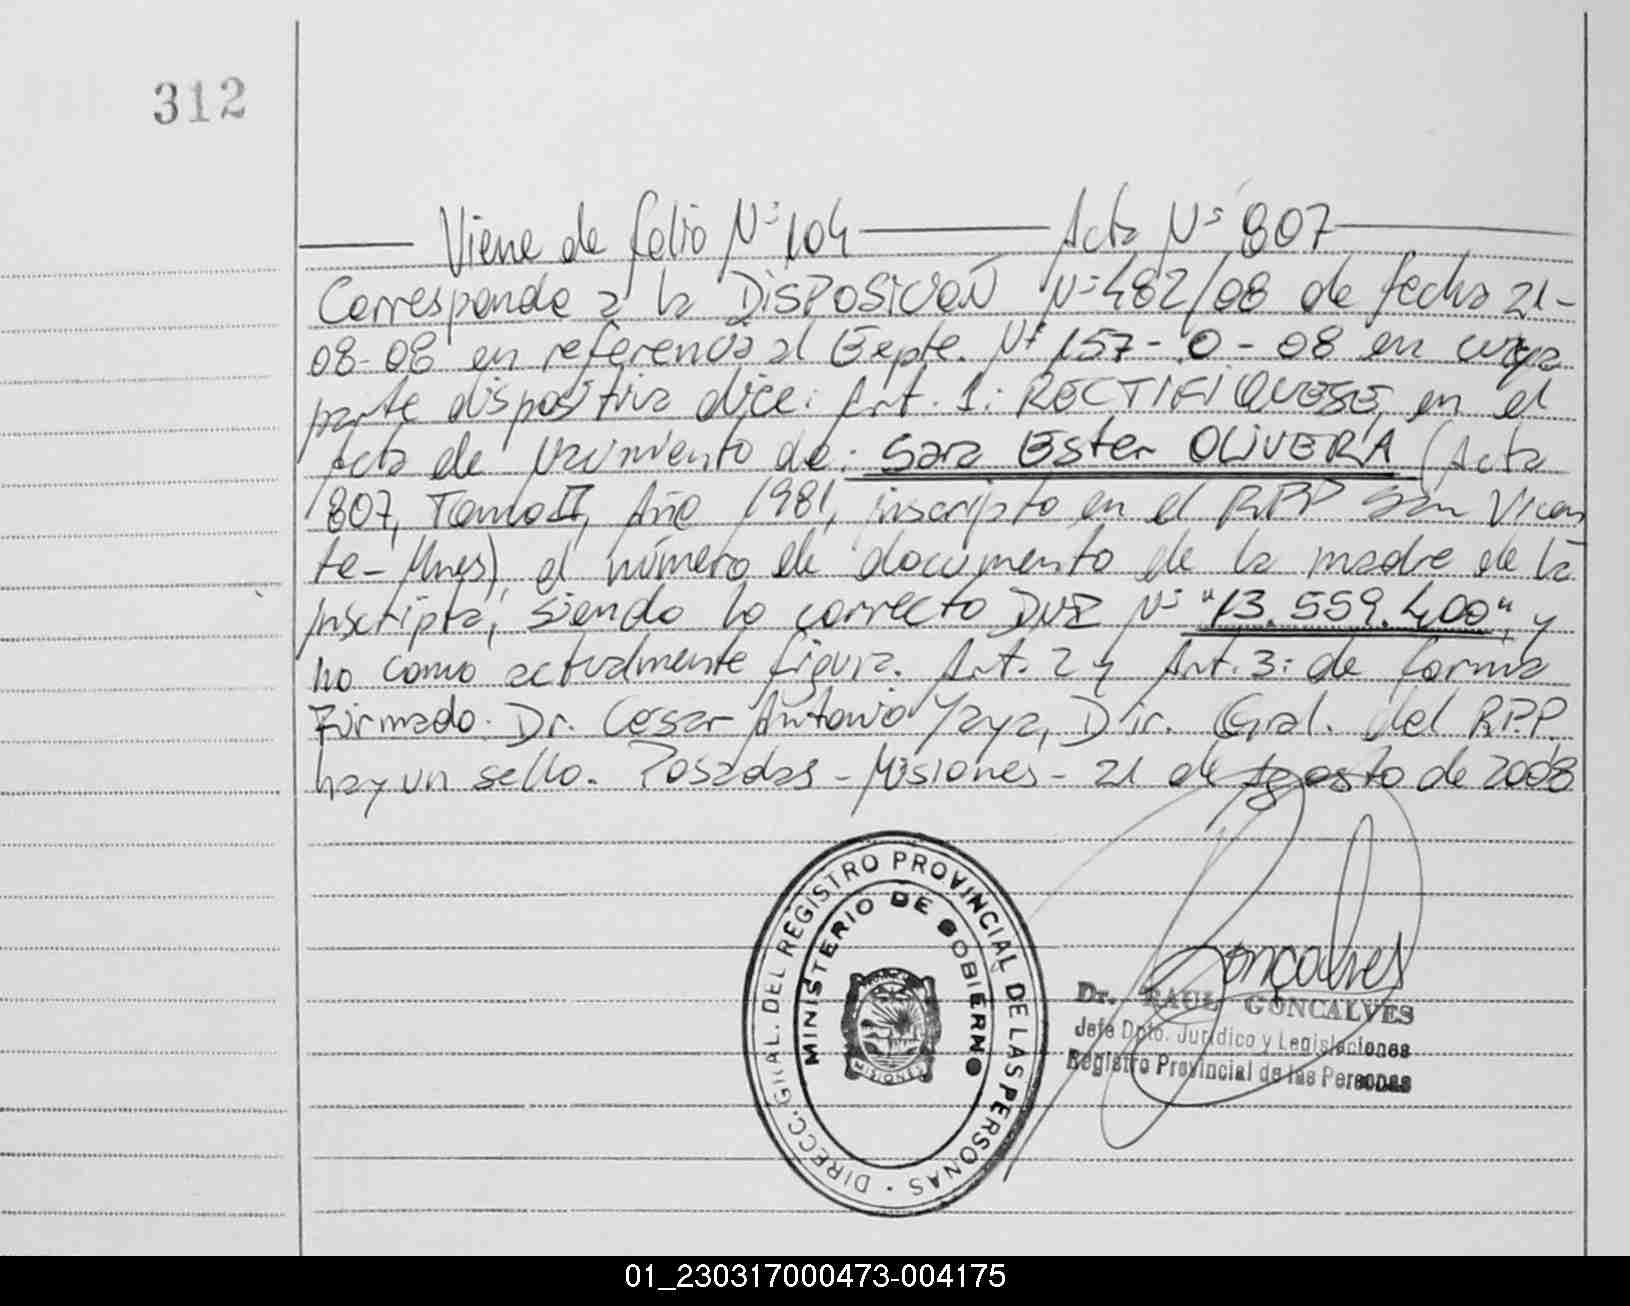 312
Viene de folio Nº 104 Acta Nº 807
Corresponde a la DISPOSICIÓN Nº 482/08 de fecha 21-
08-08 en referencia al Expte. Nº 157-0-08 en cuya
parte dispositiva dice: Art. 1: RECTIFIQUESE, en el
Acta de Nacimiento de: Sara Ester OLIVERA (Acta
807, Tomo II, Año 1981, inscripto en el RPP San Vicen
te-Mnes), el número de documento de la madre de la
inscripta, siendo lo correcto DNI Nº "13.559.400", y
no como actualmente figura. Art. 2 y Art. 3: de forma
Firmado: Dr. Cesar Antonio Yaya, Dir. Gral. del R.P.P.
hay un sello. Posadas - Misiones - 21 de Agosto de 2008
DIRECC. GRAL. DEL REGISTRO PROVINCIAL DE LAS PERSONAS
MINISTERIO DE GOBIERNO
MISIONES
Goncalves
Dr. RAUL GONCALVES
Jefe Dpto. Jurídico y Legislaciones
Registro Provincial de las Personas
01_230317000473-004175